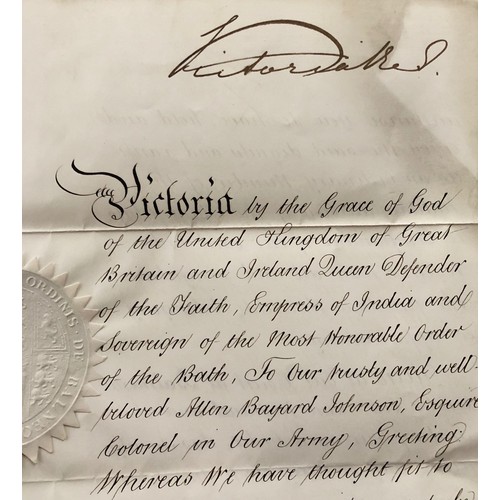 Victoria R I.
Victoria by the Grace of God
of the United Kingdom of Great
Britain and Ireland Queen Defender
of the Faith, Empress of India and
Sovereign of the Most Honorable Order
of the Bath, To Our trusty and well-
beloved Allen Bayard Johnson, Esquire
Colonel in Our Army, Greeting
Whereas We have thought fit to
ORDINIS DE BALNE